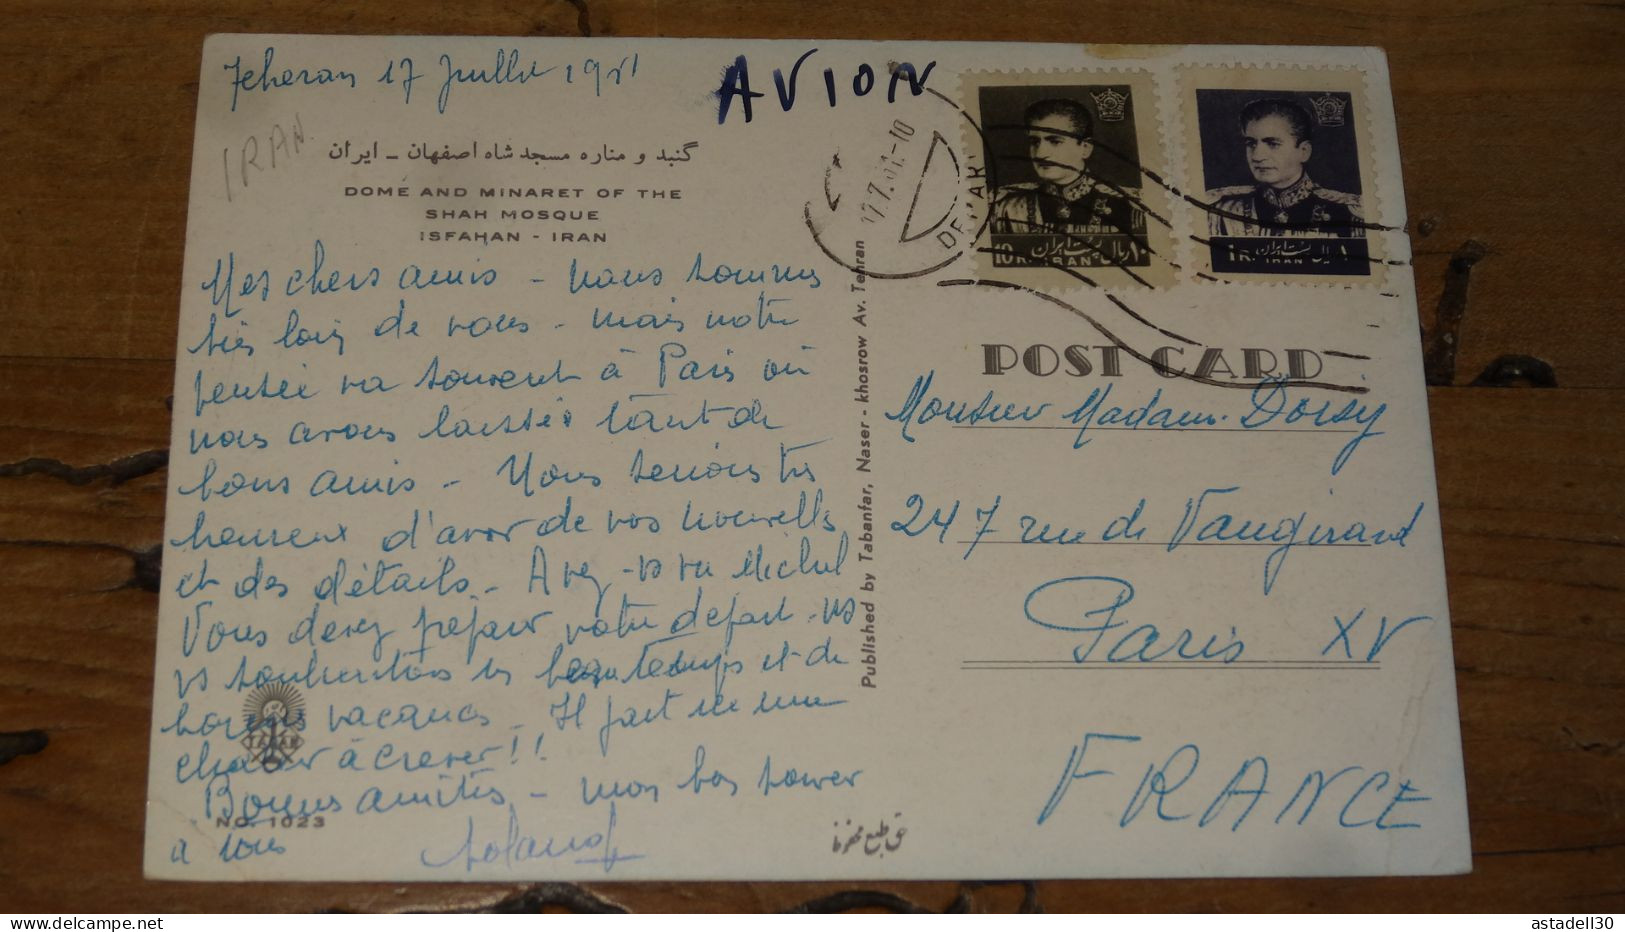 Teheran 17 Juillet 1961
AVION
IRAN.
گنبد و مناره مسجد شاه اصفهان - ایران
DOME AND MINARET OF THE
SHAH MOSQUE
ISFAHAN - IRAN
Mes chers amis - nous sommes
très loin de vous - mais notre
pensée va souvent à Paris où
nous avons laissé tant de
bons amis - Nous serions très
heureux d'avoir de vos nouvelles
et des détails - Avez-vs vu Michel
Vous devez préparer votre départ - ns
vs souhaitons un beau temps et de
bonnes vacances - Il fait ici une
chaleur à crever!!
Bonnes amitiés - mon bon
à tous
TABAN
NO. 1023
حق طبع محفوظ
Published by Tabanfar, Naser - khosrow Av. Tehran
17.7.61.-10
DEPART
10 R. پست ایران ۱۰ ریال
IRAN
1 R. پست ایران ۱ ریال
IRAN
POST CARD
Monsieur Madame Dorsy
247 rue de Vaugirard
Paris XV
FRANCE
astadell30